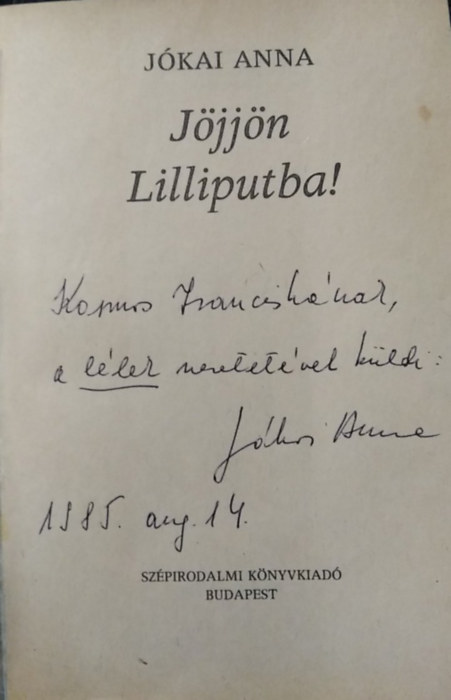 JÓKAI ANNA
Jöjjön
Lilliputba!
Kopros Franciskának,
a lélek szeretetével küldi:
Jókai Anna
1985. aug. 14.
SZÉPIRODALMI KÖNYVKIADÓ
BUDAPEST